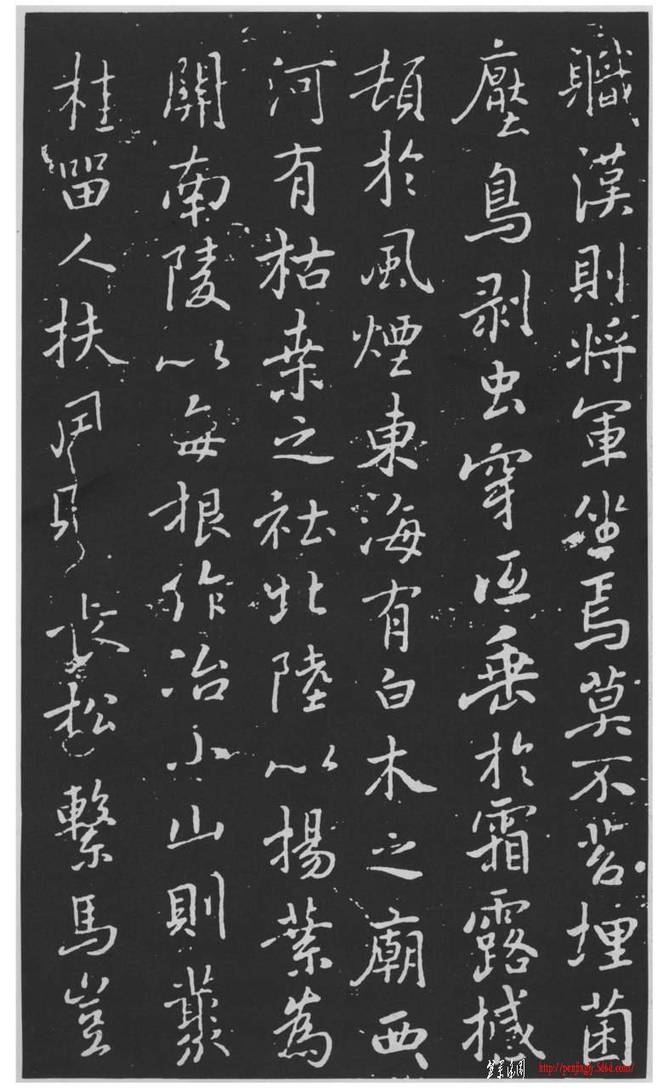 軄漢則將軍坐焉莫不苔埋菌
壓鳥剥虫穿低垂於霜露撼
頓於風煙東海有白木之廟西
河有枯桒之社北陸以楊葉為
關南陵以每根作冶小山則叢
桂留人扶風則長松繫馬豈